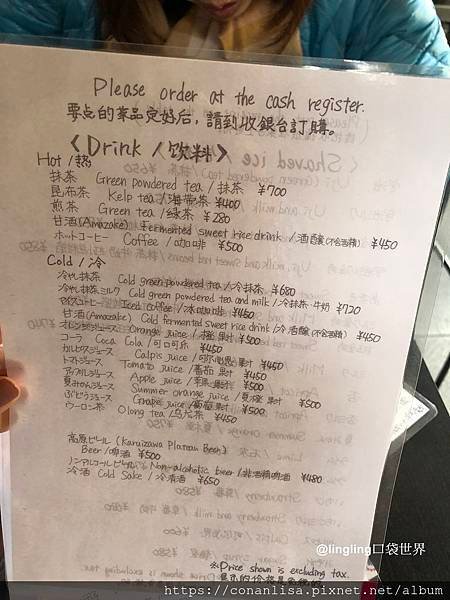 Please order at the cash register.
要点的菜品定好后，請到收銀台訂購。
〈Drink / 饮料〉
Hot / 热
抹茶 Green powdered tea / 抹茶 ¥700
昆布茶 Kelp tea / 海带茶 ¥400
煎茶 Green tea / 绿茶 ¥280
甘酒(Amazake) Fermented sweet rice drink / 酒釀(不含酒精) ¥450
ホットコーヒー Coffee / 咖啡 ¥500
Cold / 冷
冷やし抹茶 Cold green powdered tea / 冷抹茶 ¥680
冷やし抹茶ミルク Cold green powdered tea and milk / 冷抹茶·牛奶 ¥720
アイスコーヒー Iced coffee / 冰咖啡 ¥450
甘酒(Amazake) Cold fermented sweet rice drink / 冷酒釀(不含酒精) ¥450
オレンジジュース Orange juice / 橙果汁 ¥500
コーラ Coca Cola / 可口可乐 ¥450
カルピスジュース Calpis juice / 果汁 ¥450
トマトジュース Tomato juice / 番茄果汁 ¥450
アップルジュース Apple juice / 苹果 ¥500
夏みかんジュース Summer orange juice / 夏橙果汁 ¥500
ぶどうジュース Grape juice / 葡萄果汁 ¥500
ウーロン茶 Olong tea / 乌龙茶 ¥450
高原ビール (Karuizawa Plateau Beer)
Beer / 啤酒 ¥500
ノンアルコールビール Non-alcoholic beer / 非酒精啤酒 ¥480
冷酒 Cold Sake / 冷清酒 ¥650
※Price shown is excluding tax.
@lingling口袋世界
http://conanlisa.pixnet.net/album